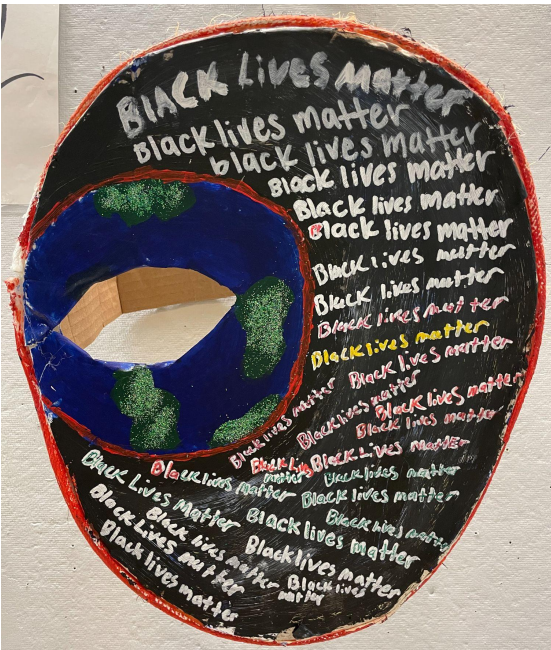 BLACK Lives Matter
Black lives matter
black lives matter
Black lives matter
Black lives matter
Black lives matter
Black lives matter
Black lives matter
Black lives matter
Black lives matter
Black lives matter
Black lives matter
Black lives matter
Black lives matter
Black lives matter
Black lives matter
Black Lives Matter
Black lives matter
Black lives matter
Black lives matter
Black lives matter
Black Lives Matter
Black lives matter
Black lives matter
Black Lives matter
Black lives matter
Black lives matter
Black lives matter
Black lives matter